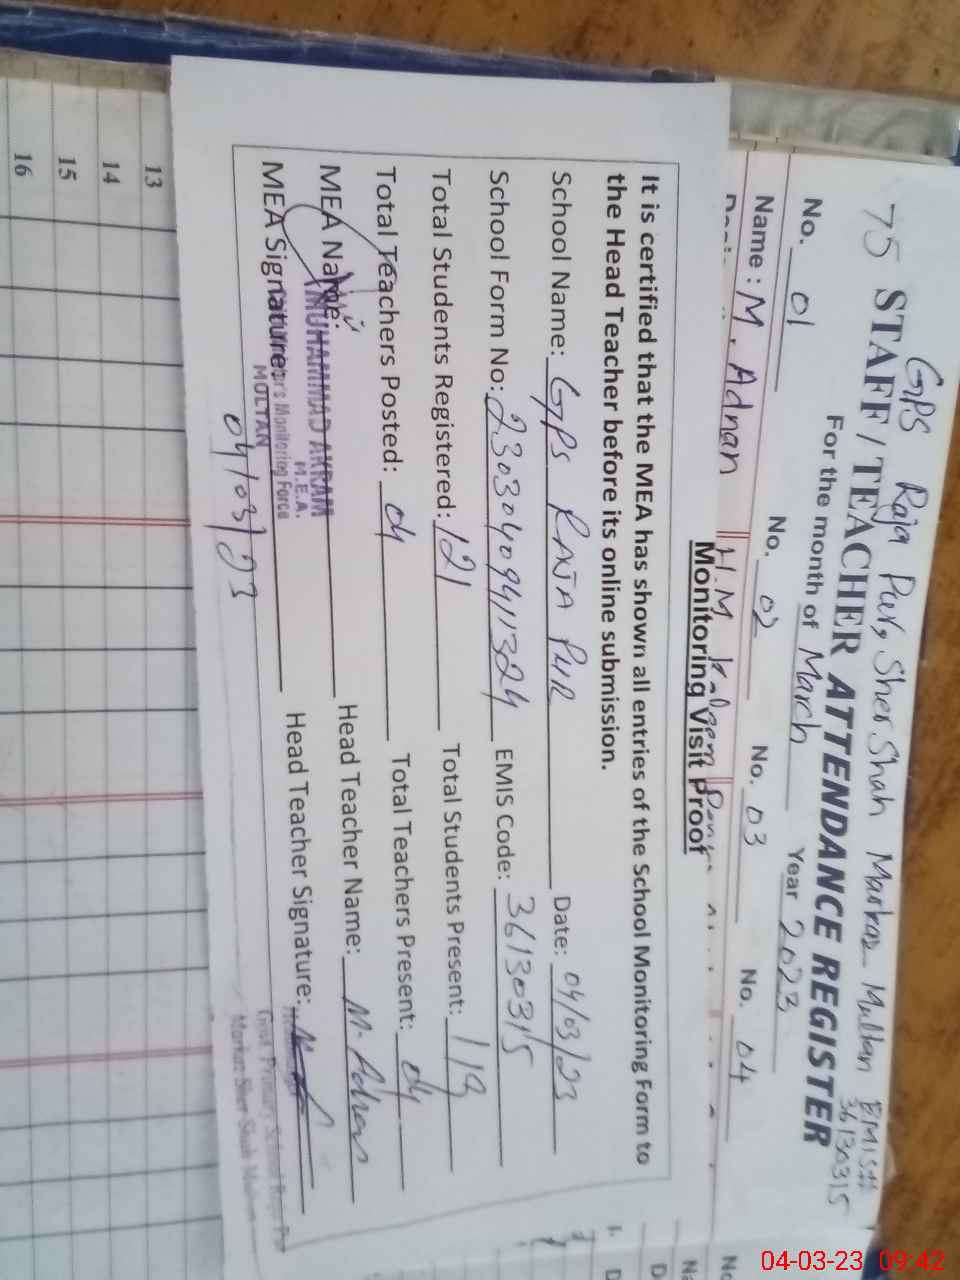 GPS Raja Pur, Sher Shah Markaz Multan EMIS# 36130315
75 STAFF / TEACHER ATTENDANCE REGISTER
For the month of March Year 2023
No. 01 No. 02 No. 03 No. 04
Name : M. Adnan H.M
Monitoring Visit Proof
It is certified that the MEA has shown all entries of the School Monitoring Form to
the Head Teacher before its online submission.
School Name: GPS RAJA PUR Date: 04/03/23
School Form No: 23030409411324 EMIS Code: 36130315
Total Students Registered: 121 Total Students Present: 119
Total Teachers Posted: 04 Total Teachers Present: 04
MEA Name: MUHAMMAD AKRAM Head Teacher Name: M. Adnan
M.E.A.
MEA Signature: Monitoring Force Head Teacher Signature:
MULTAN
04/03/23
Govt. Primary School
Markaz Sher Shah Multan
13
14
15
16
04-03-23 09:42